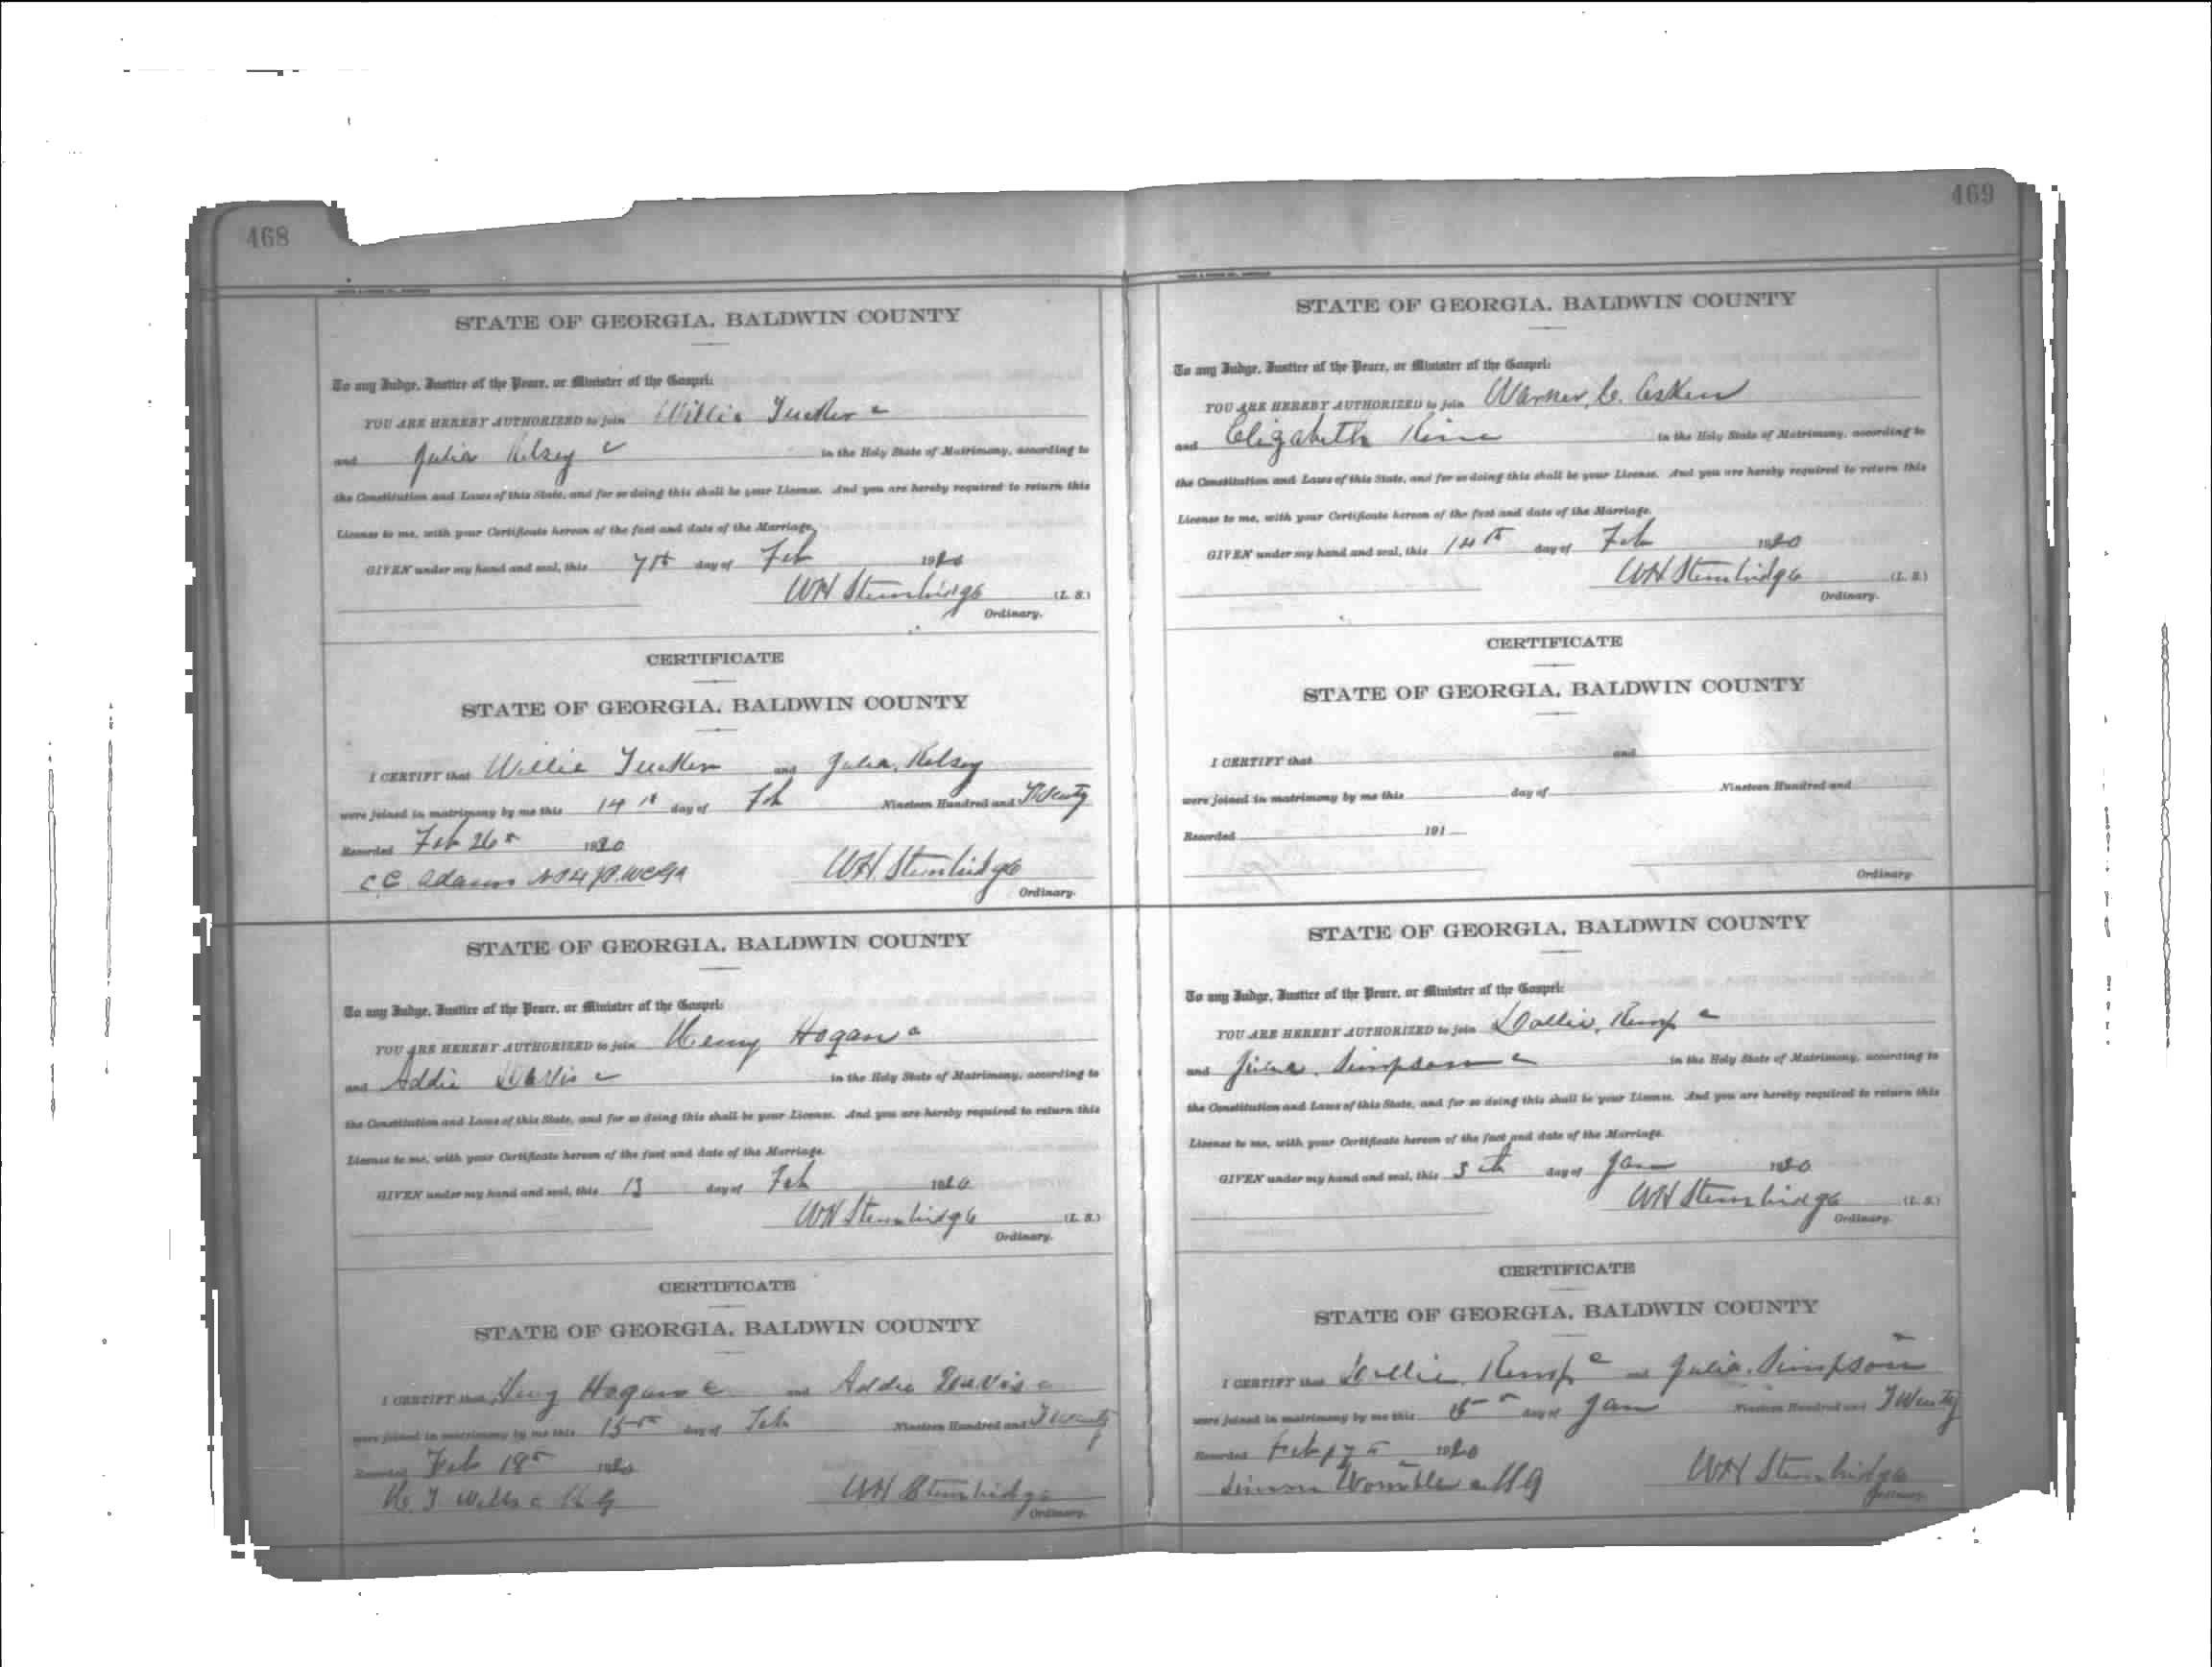 468
STATE OF GEORGIA. BALDWIN COUNTY
To any Judge, Justice of the Peace, or Minister of the Gospel:
YOU ARE HEREBY AUTHORIZED to join Willie Tucker c
and Julia Kelsey c in the Holy State of Matrimony, according to
the Constitution and Laws of this State, and for so doing this shall be your License. And you are hereby required to return this
License to me, with your Certificate hereon of the fact and date of the Marriage.
GIVEN under my hand and seal, this 7th day of Feb 1920
WH Stembridge (L. S.)
Ordinary.
CERTIFICATE
STATE OF GEORGIA. BALDWIN COUNTY
I CERTIFY that Willie Tucker and Julia Kelsey
were joined in matrimony by me this 14th day of Feb Nineteen Hundred and Twenty
Recorded Feb 26 1920
C C Adams WH Stembridge
Ordinary.
STATE OF GEORGIA. BALDWIN COUNTY
To any Judge, Justice of the Peace, or Minister of the Gospel:
YOU ARE HEREBY AUTHORIZED to join Henry Hogan c
and Addie Davis c in the Holy State of Matrimony, according to
the Constitution and Laws of this State, and for so doing this shall be your License. And you are hereby required to return this
License to me, with your Certificate hereon of the fact and date of the Marriage.
GIVEN under my hand and seal, this 13 day of Feb 1920
WH Stembridge (L. S.)
Ordinary.
CERTIFICATE
STATE OF GEORGIA. BALDWIN COUNTY
I CERTIFY that Henry Hogan c and Addie Davis c
were joined in matrimony by me this 15th day of Feb Nineteen Hundred and Twenty
Recorded Feb 18 1920
WH Stembridge
Ordinary.
469
STATE OF GEORGIA. BALDWIN COUNTY
To any Judge, Justice of the Peace, or Minister of the Gospel:
YOU ARE HEREBY AUTHORIZED to join Warner, C. Asken
and Elizabeth in the Holy State of Matrimony, according to
the Constitution and Laws of this State, and for so doing this shall be your License. And you are hereby required to return this
License to me, with your Certificate hereon of the fact and date of the Marriage.
GIVEN under my hand and seal, this 14th day of Feb 1920
WH Stembridge (L. S.)
Ordinary.
CERTIFICATE
STATE OF GEORGIA. BALDWIN COUNTY
I CERTIFY that and
were joined in matrimony by me this day of Nineteen Hundred and
Recorded 191
Ordinary.
STATE OF GEORGIA. BALDWIN COUNTY
To any Judge, Justice of the Peace, or Minister of the Gospel:
YOU ARE HEREBY AUTHORIZED to join Kemp c
and Simpson c in the Holy State of Matrimony, according to
the Constitution and Laws of this State, and for so doing this shall be your License. And you are hereby required to return this
License to me, with your Certificate hereon of the fact and date of the Marriage.
GIVEN under my hand and seal, this 5th day of Jan 1920
WH Stembridge (L. S.)
Ordinary.
CERTIFICATE
STATE OF GEORGIA. BALDWIN COUNTY
I CERTIFY that Kemp c and Julia Simpson c
were joined in matrimony by me this day of Jan Nineteen Hundred and Twenty
Recorded Feb 17 1920
Womble WH Stembridge
Ordinary.